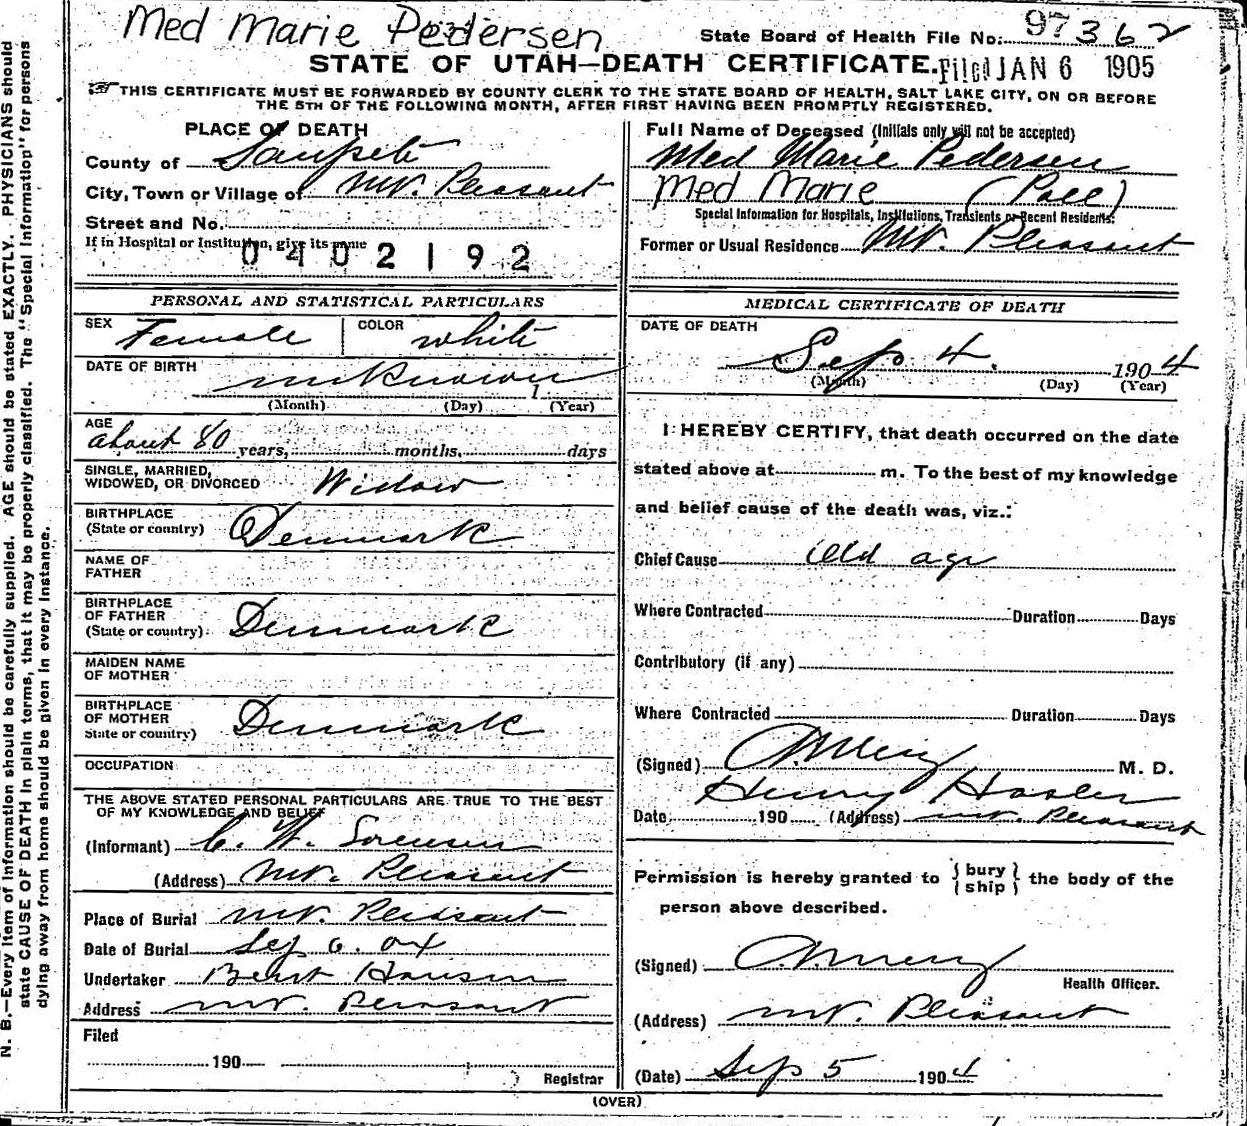 Med Marie Pedersen
State Board of Health File No. 97362
STATE OF UTAH—DEATH CERTIFICATE. Filed JAN 6 1905
THIS CERTIFICATE MUST BE FORWARDED BY COUNTY CLERK TO THE STATE BOARD OF HEALTH, SALT LAKE CITY, ON OR BEFORE
THE 5TH OF THE FOLLOWING MONTH, AFTER FIRST HAVING BEEN PROMPTLY REGISTERED.
PLACE OF DEATH
County of Sanpete
City, Town or Village of Mt. Pleasant
Street and No.
If in Hospital or Institution, give its name
0402192
PERSONAL AND STATISTICAL PARTICULARS
SEX Female COLOR white
DATE OF BIRTH unknown 1
(Month) (Day) (Year)
AGE
about 80 years, months, days
SINGLE, MARRIED,
WIDOWED, OR DIVORCED Widow
BIRTHPLACE
(State or country) Denmark
NAME OF
FATHER
BIRTHPLACE
OF FATHER
(State or country) Denmark
MAIDEN NAME
OF MOTHER
BIRTHPLACE
OF MOTHER
State or country) Denmark
OCCUPATION
THE ABOVE STATED PERSONAL PARTICULARS ARE TRUE TO THE BEST
OF MY KNOWLEDGE AND BELIEF
(Informant) C. W. Sorensen
(Address) Mt. Pleasant
Place of Burial Mt. Pleasant
Date of Burial Sep 6. 04
Undertaker Bent Hansen
Address Mt. Pleasant
Filed
190
Registrar
Full Name of Deceased (Initials only will not be accepted)
Med Marie Pedersen
Med Marie (Poll)
Special Information for Hospitals, Institutions, Transients or Recent Residents.
Former or Usual Residence Mt. Pleasant
MEDICAL CERTIFICATE OF DEATH
DATE OF DEATH
Sep 4. 1904
(Month) (Day) (Year)
I HEREBY CERTIFY, that death occurred on the date
stated above at m. To the best of my knowledge
and belief cause of the death was, viz.:
Chief Cause Old age
Where Contracted Duration Days
Contributory (if any)
Where Contracted Duration Days
(Signed) M. D.
Henry Hasler
Date 190 (Address) Mt. Pleasant
Permission is hereby granted to { bury
ship } the body of the
person above described.
(Signed)
Health Officer.
(Address) Mt. Pleasant
(Date) Sep 5 1904
(OVER)
N. B.—Every item of Information should be carefully supplied. AGE should be stated EXACTLY. PHYSICIANS should
state CAUSE OF DEATH in plain terms, that it may be properly classified. The "Special Information" for persons
dying away from home should be given in every instance.